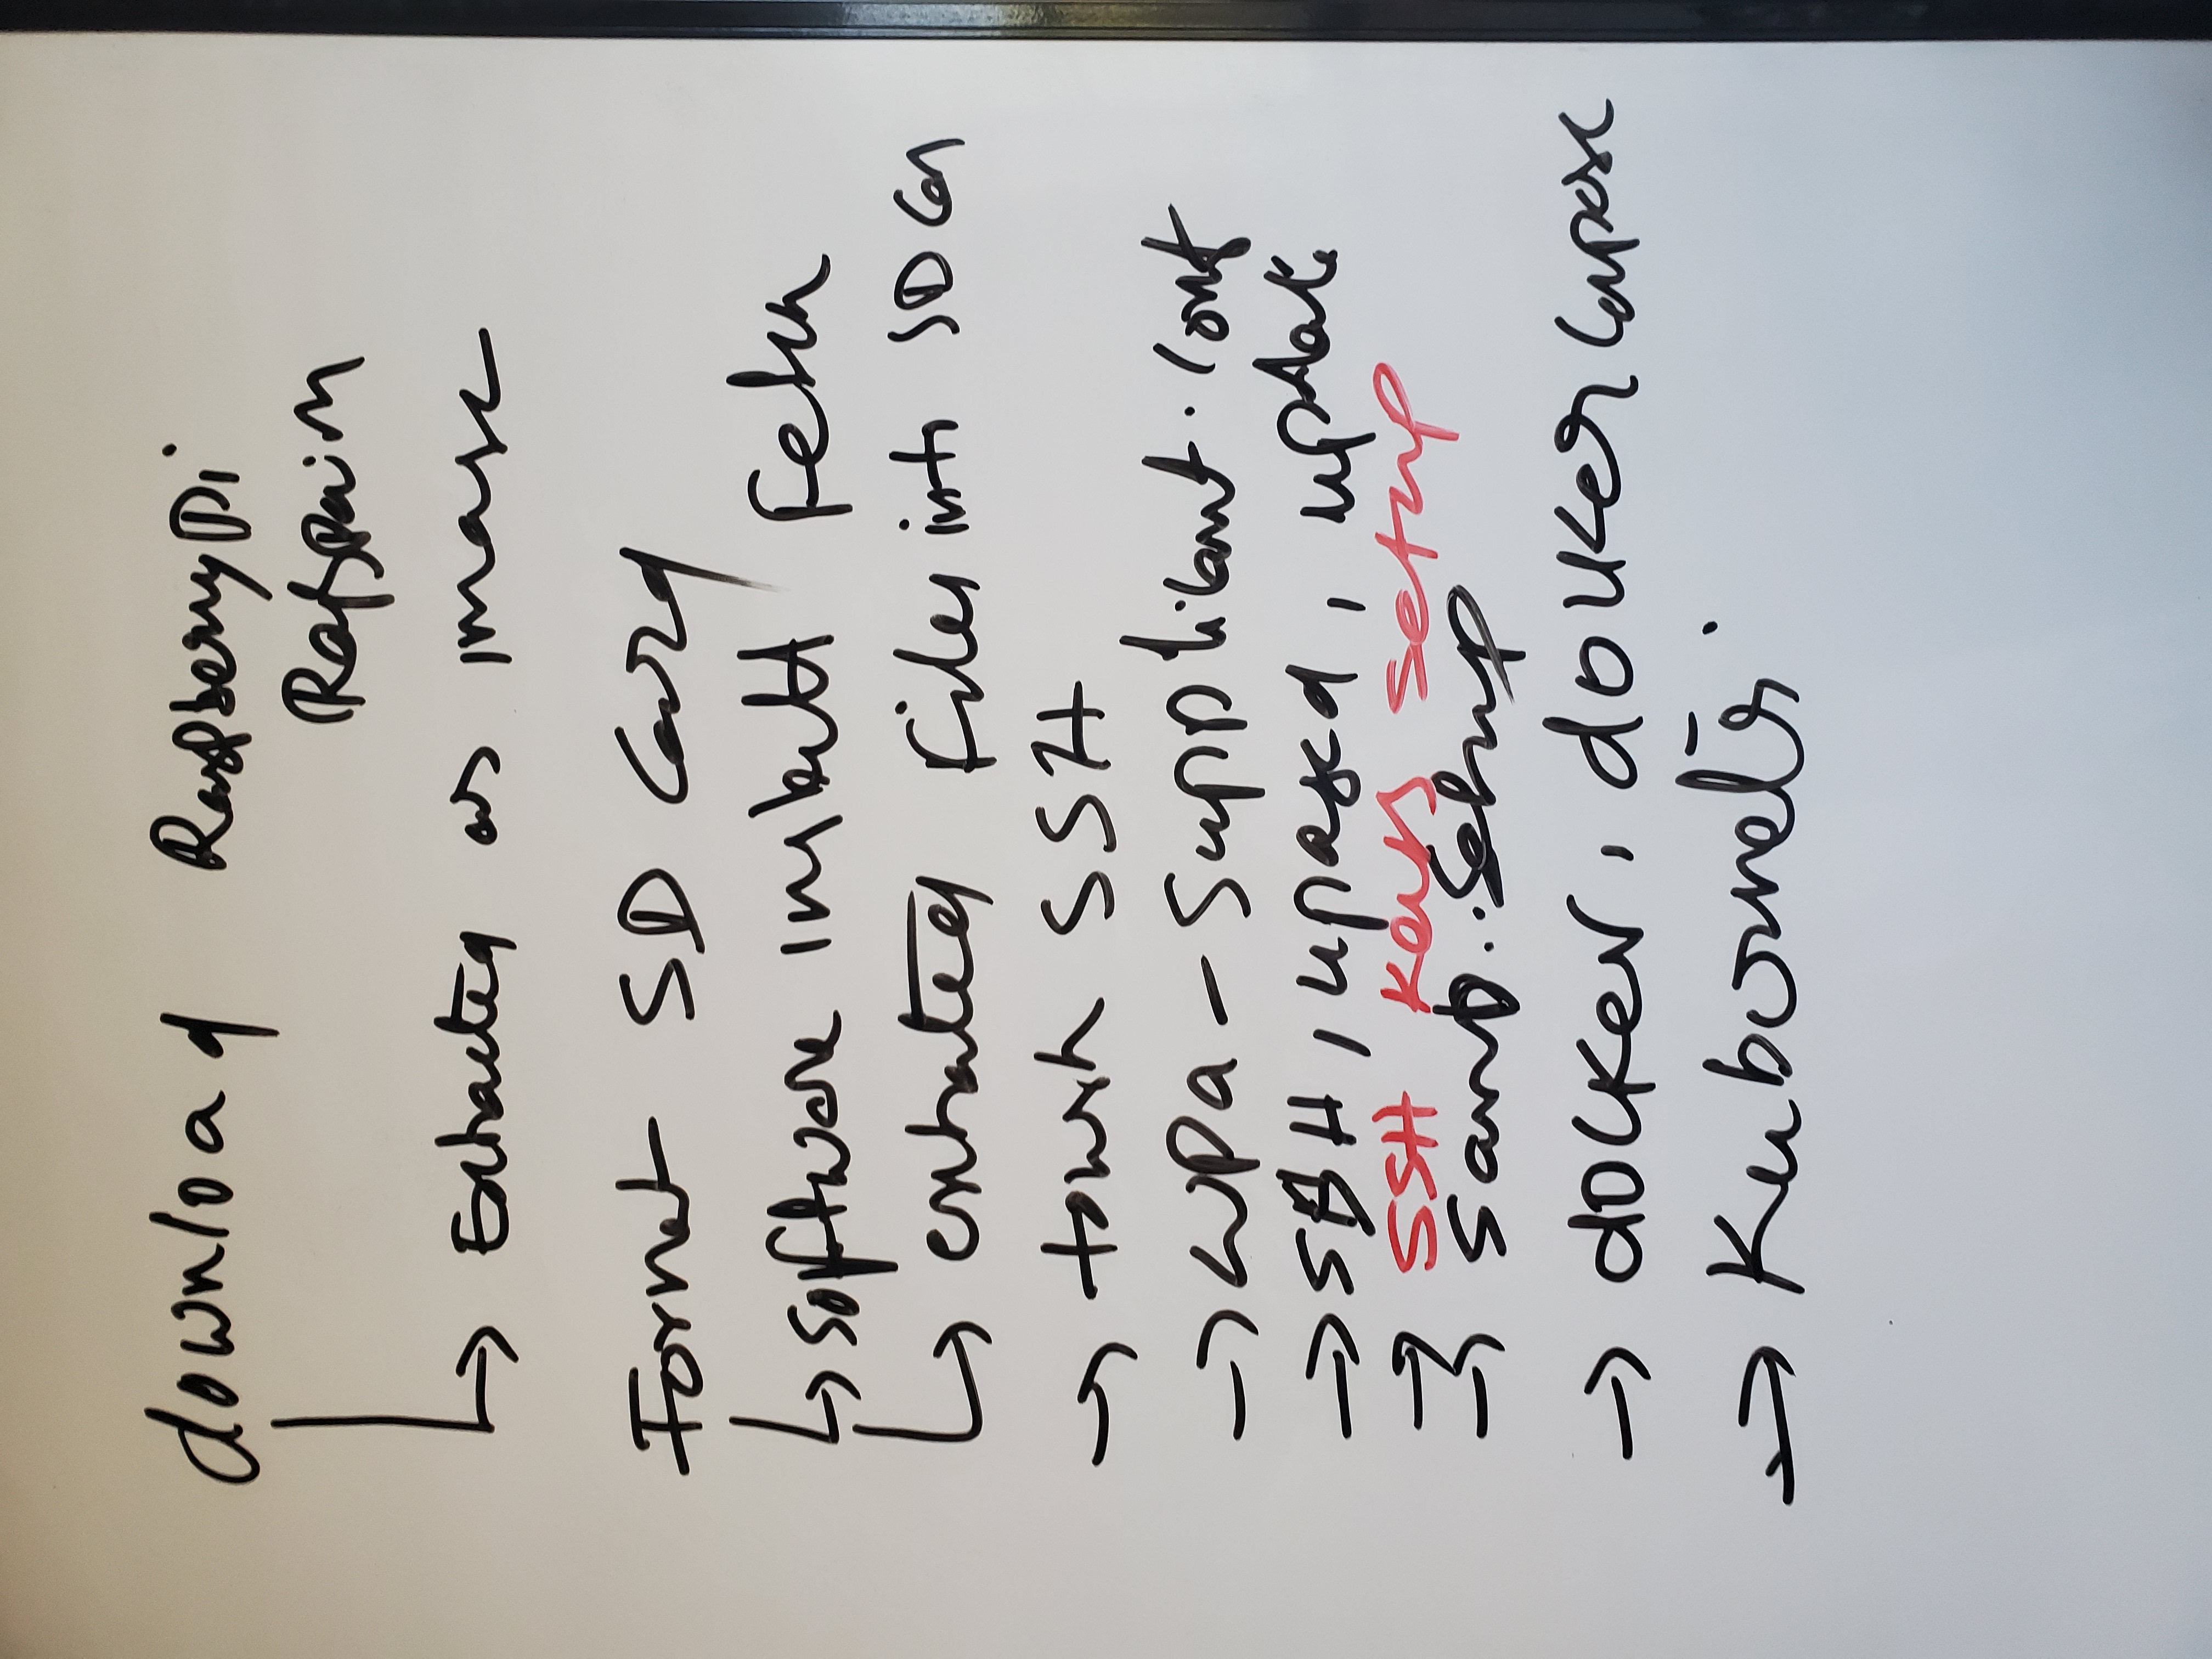 download RaspberryPi
Raspbian
→ Extracted as image
Format SD Card
→ software install
→ extrated files into SD Car
→ touch SSH
→ wpa - supplicant.conf
→ SSH, upgrad, update
→ SSH keys setup
→ setup
→ docker, docker compose
→ Kubernetes